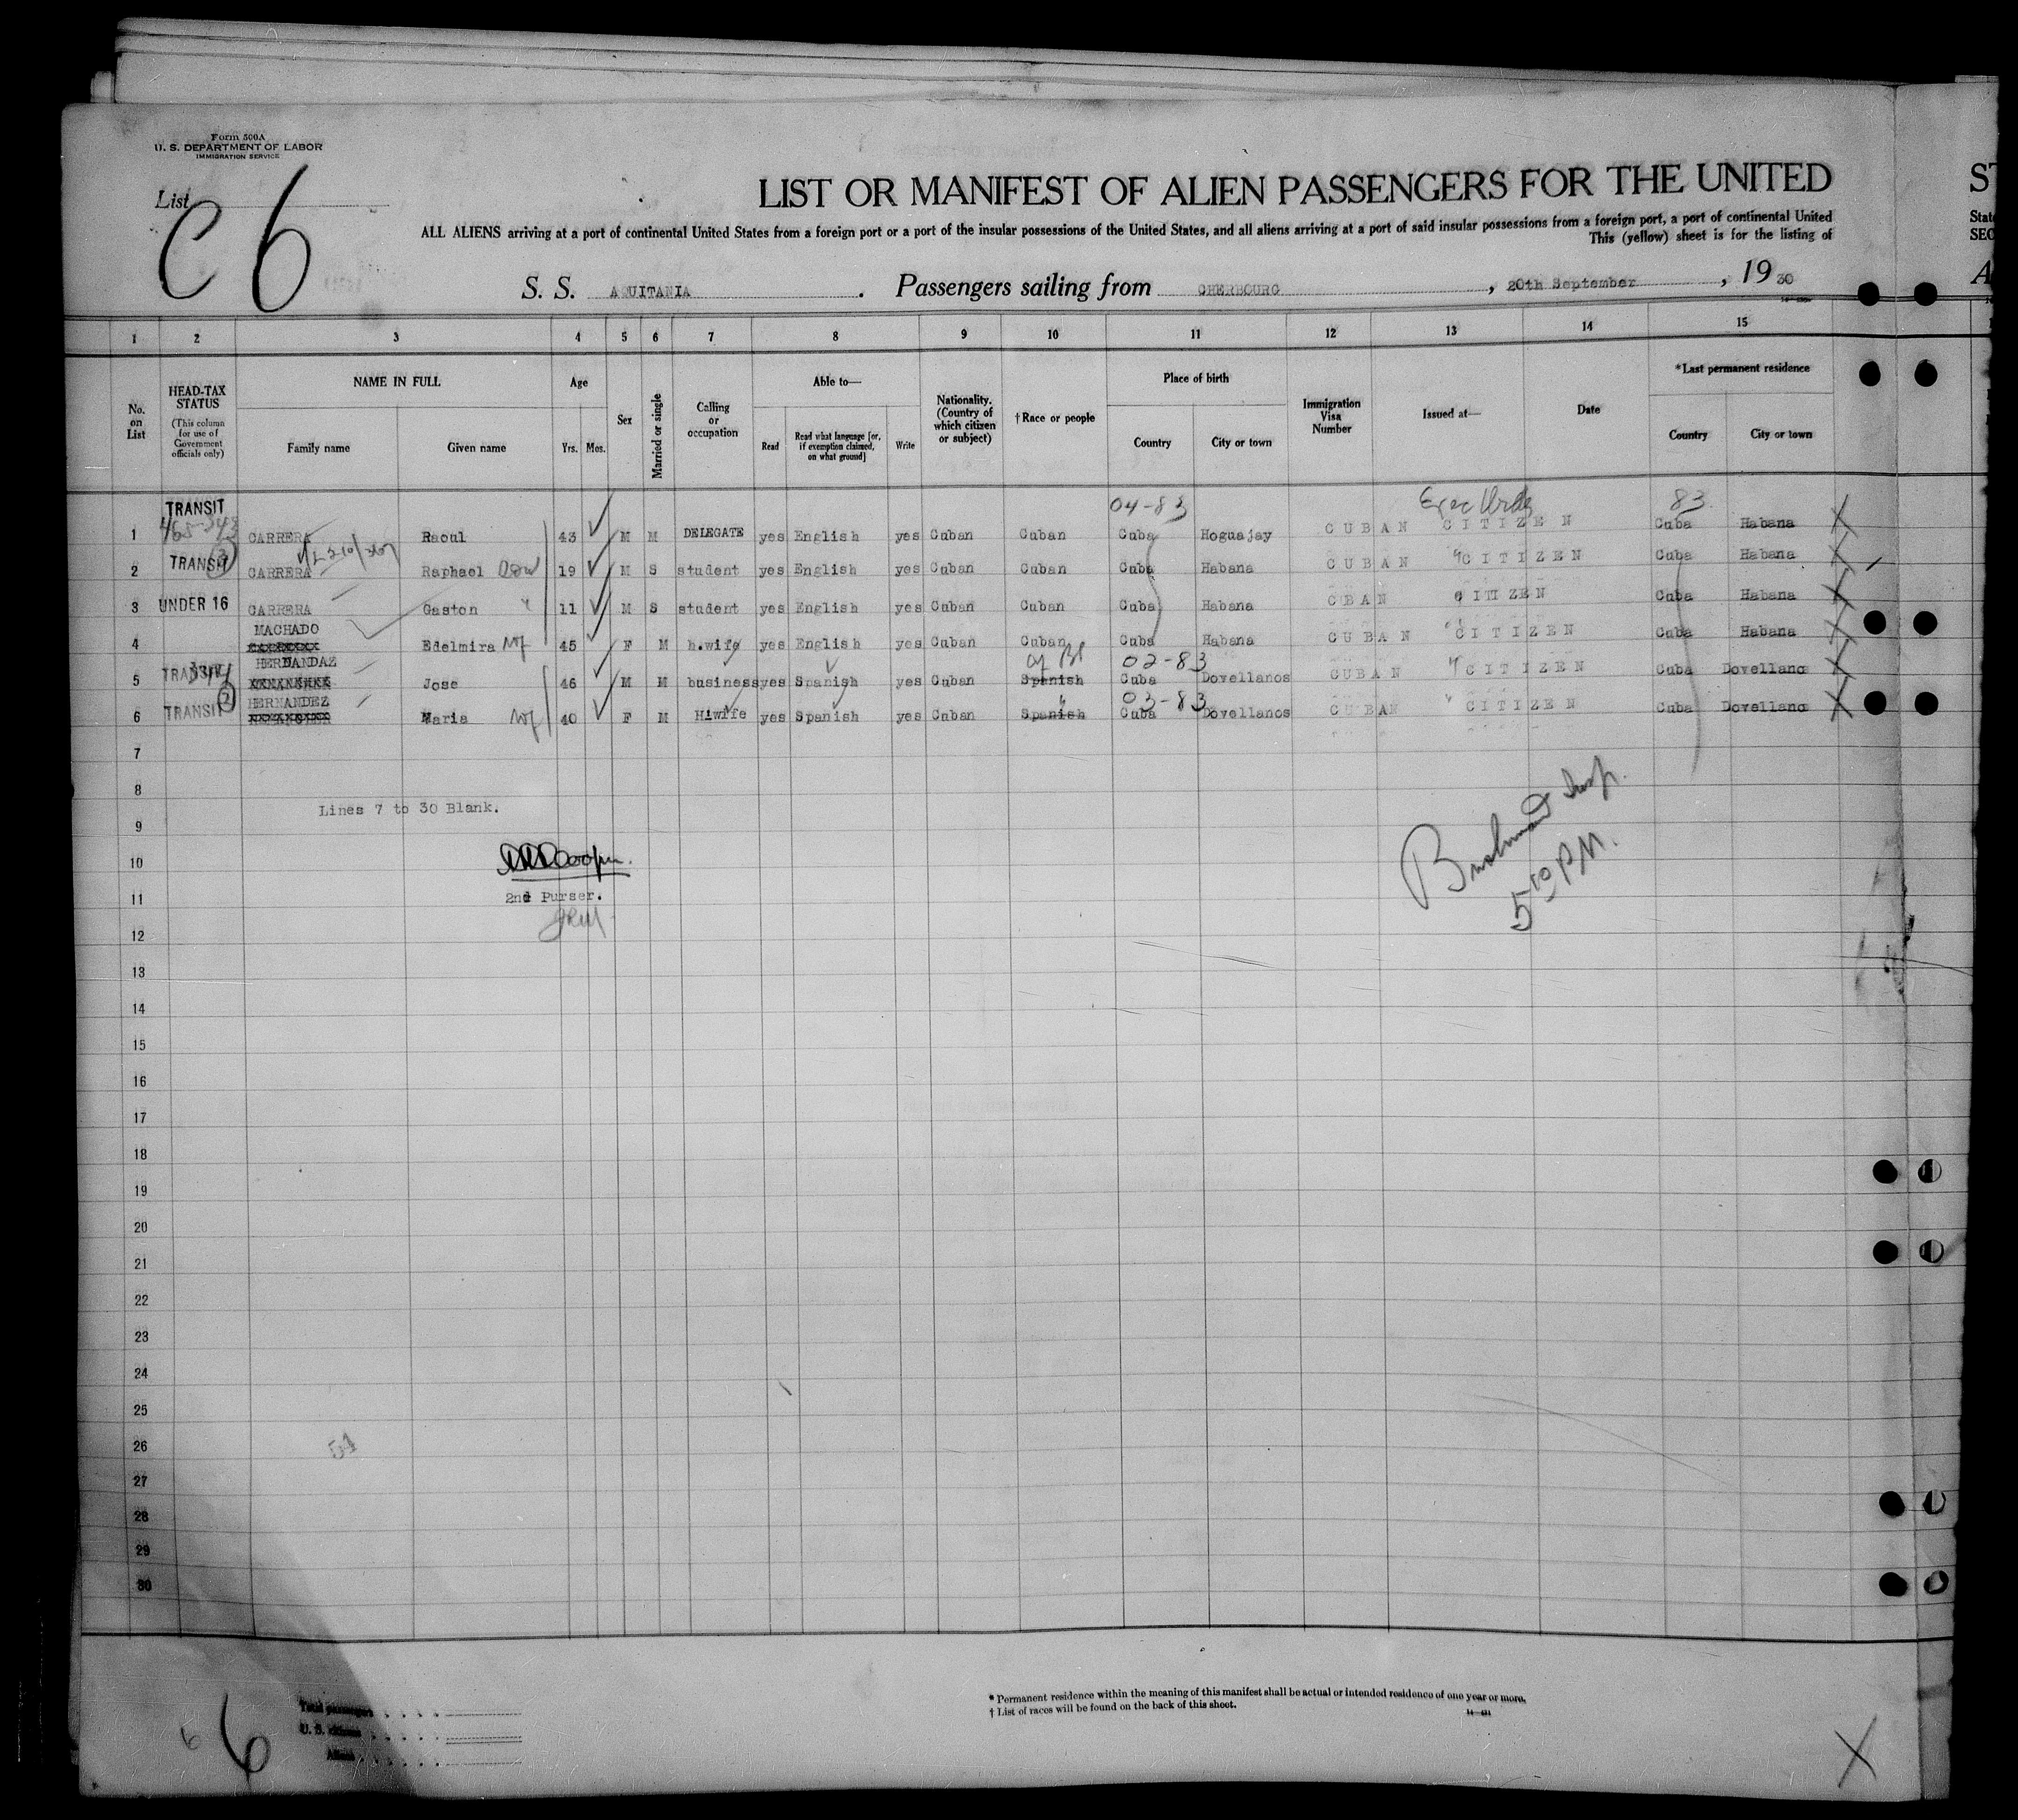 Form 500A
U. S. DEPARTMENT OF LABOR
IMMIGRATION SERVICE
List
C 6
LIST OR MANIFEST OF ALIEN PASSENGERS FOR THE UNITED
ST
ALL ALIENS arriving at a port of continental United States from a foreign port or a port of the insular possessions of the United States, and all aliens arriving at a port of said insular possessions from a foreign port, a port of continental United
State
This (yellow) sheet is for the listing of
SEC
S. S. AQUITANIA . Passengers sailing from CHERBOURG , 20th September , 19 30
A
1 2 3 4 5 6 7 8 9 10 11 12 13 14 15
No. on List
HEAD-TAX STATUS
(This column for use of Government officials only)
NAME IN FULL
Family name Given name
Age
Yrs. Mos.
Sex
Married or single
Calling or occupation
Able to—
Read
Read what language [or, if exemption claimed, on what ground]
Write
Nationality. (Country of which citizen or subject)
† Race or people
Place of birth
Country City or town
Immigration Visa Number
Issued at—
Date
*Last permanent residence
Country City or town
TRANSIT 04-83 83
1 CARRERA Raoul 43 M M DELEGATE yes English yes Cuban Cuban Cuba Hoguajay CUBAN CITIZEN Cuba Habana X
2 TRANSIT CARRERA Raphael 19 M S student yes English yes Cuban Cuban Cuba Habana CUBAN " CITIZEN Cuba Habana X
3 UNDER 16 CARRERA Gaston 11 M S student yes English yes Cuban Cuban Cuba Habana CBAN CITIZEN Cuba Habana X
MACHADO
4 Edelmira 45 F M h.wife yes English yes Cuban Cuban Cuba Habana CUBAN " CITIZEN Cuba Habana X
HERNANDAZ 02-83
5 TRANSIT Jose 46 M M business yes Spanish yes Cuban Spanish Cuba Dovellanos CUBAN " CITIZEN Cuba Dovellano X
HERNANDEZ 03-83
6 TRANSIT Maria 40 F M H.wife yes Spanish yes Cuban Spanish Cuba Dovellanos CUBAN " CITIZEN Cuba Dovellano X
7
8
Lines 7 to 30 Blank.
9
10
5 10 P.M.
11
2nd Purser.
12
13
14
15
16
17
18
19
20
21
22
23
24
25
26
27
28
29
30
* Permanent residence within the meaning of this manifest shall be actual or intended residence of one year or more.
† List of races will be found on the back of this sheet.
Total passengers
U. S. citizens
Aliens
6 6
X